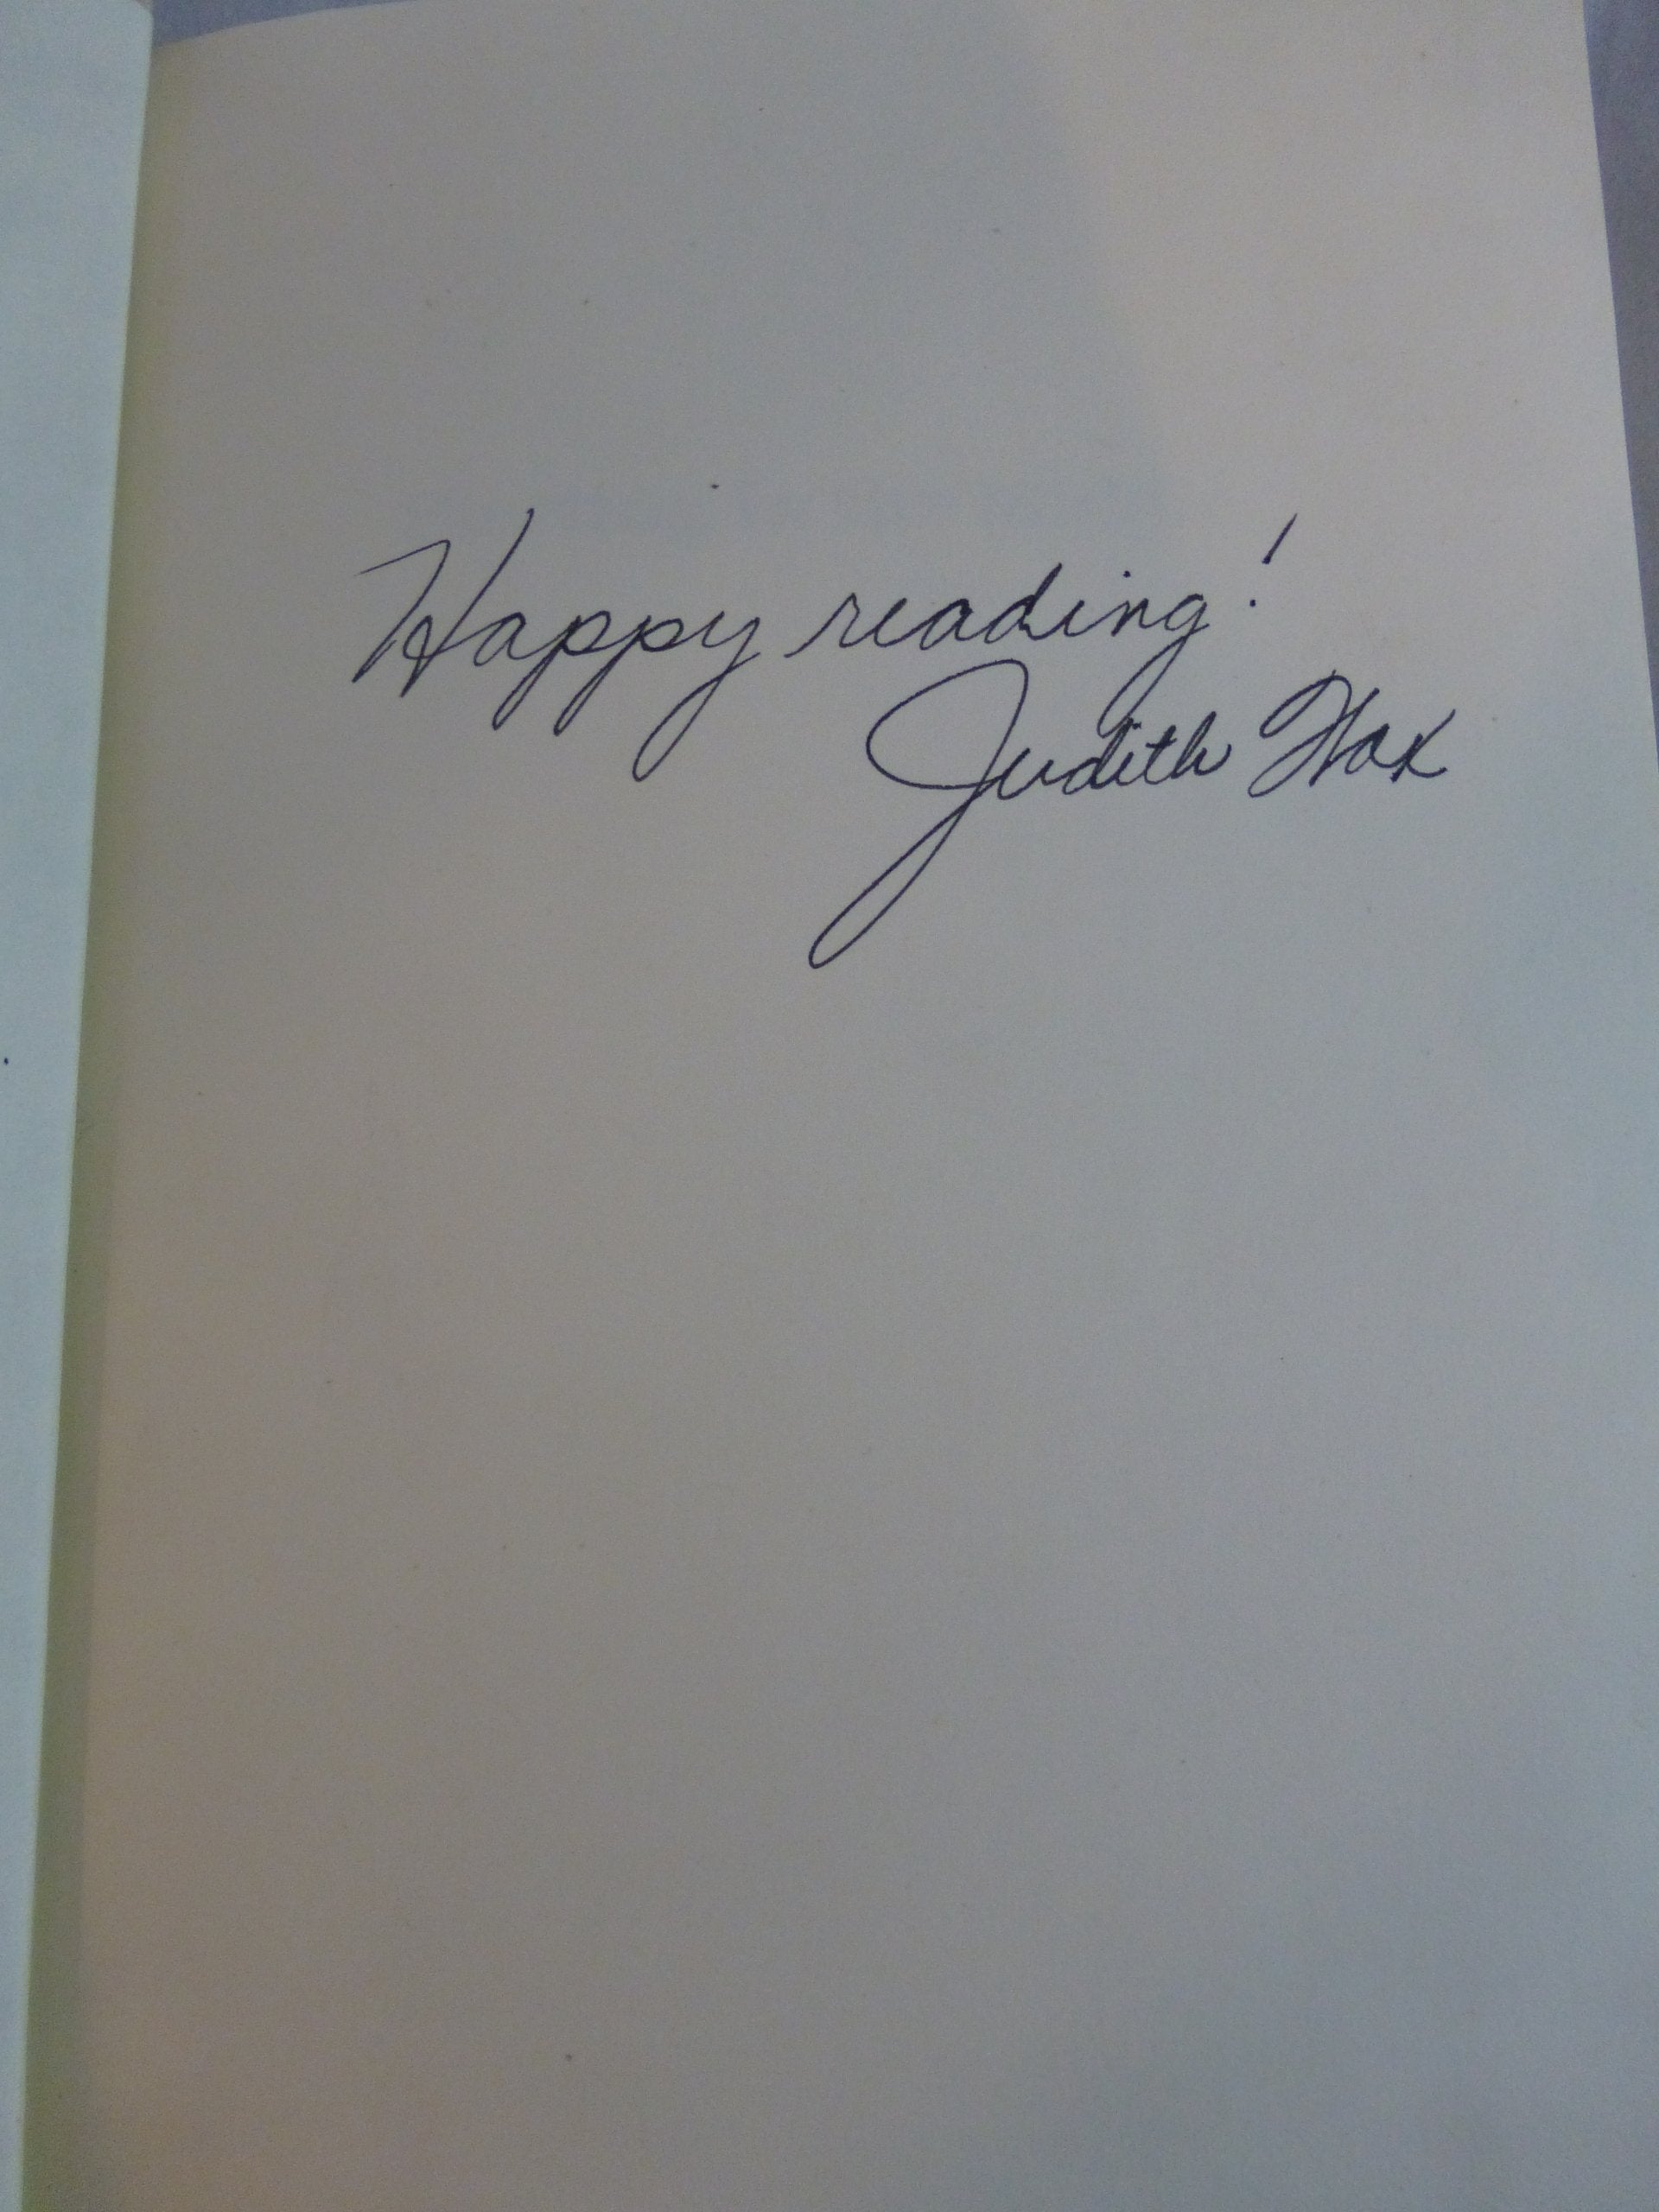 Happy reading!
Judith Wax